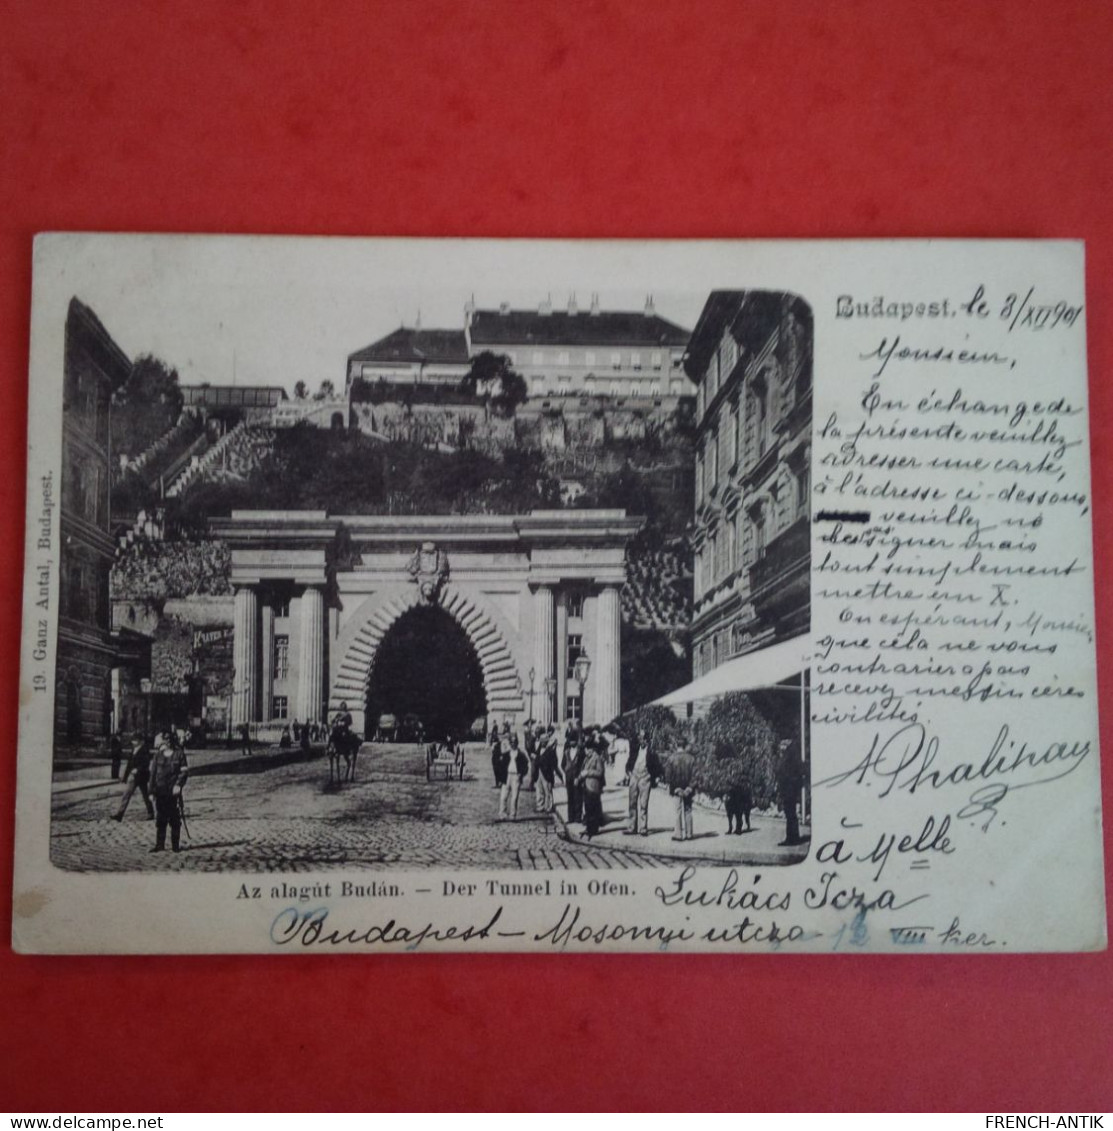 Budapest, le 3/XII 901
Monsieur,
En échange de
la présente veuillez
adresser une carte,
à l'adresse ci-dessous,
veuillez ne
signer mais
tout simplement
mettre em X.
En espérant, Monsieur
que céla ne vous
contrarier a pas
recevez mes sincéres
civilités.
à Melle
Lukács Icza
Budapest - Mosonyi utcza 12 VIII ker.
Az alagút Budán. — Der Tunnel in Ofen.
19. Ganz Antal, Budapest.
FRENCH-ANTIK